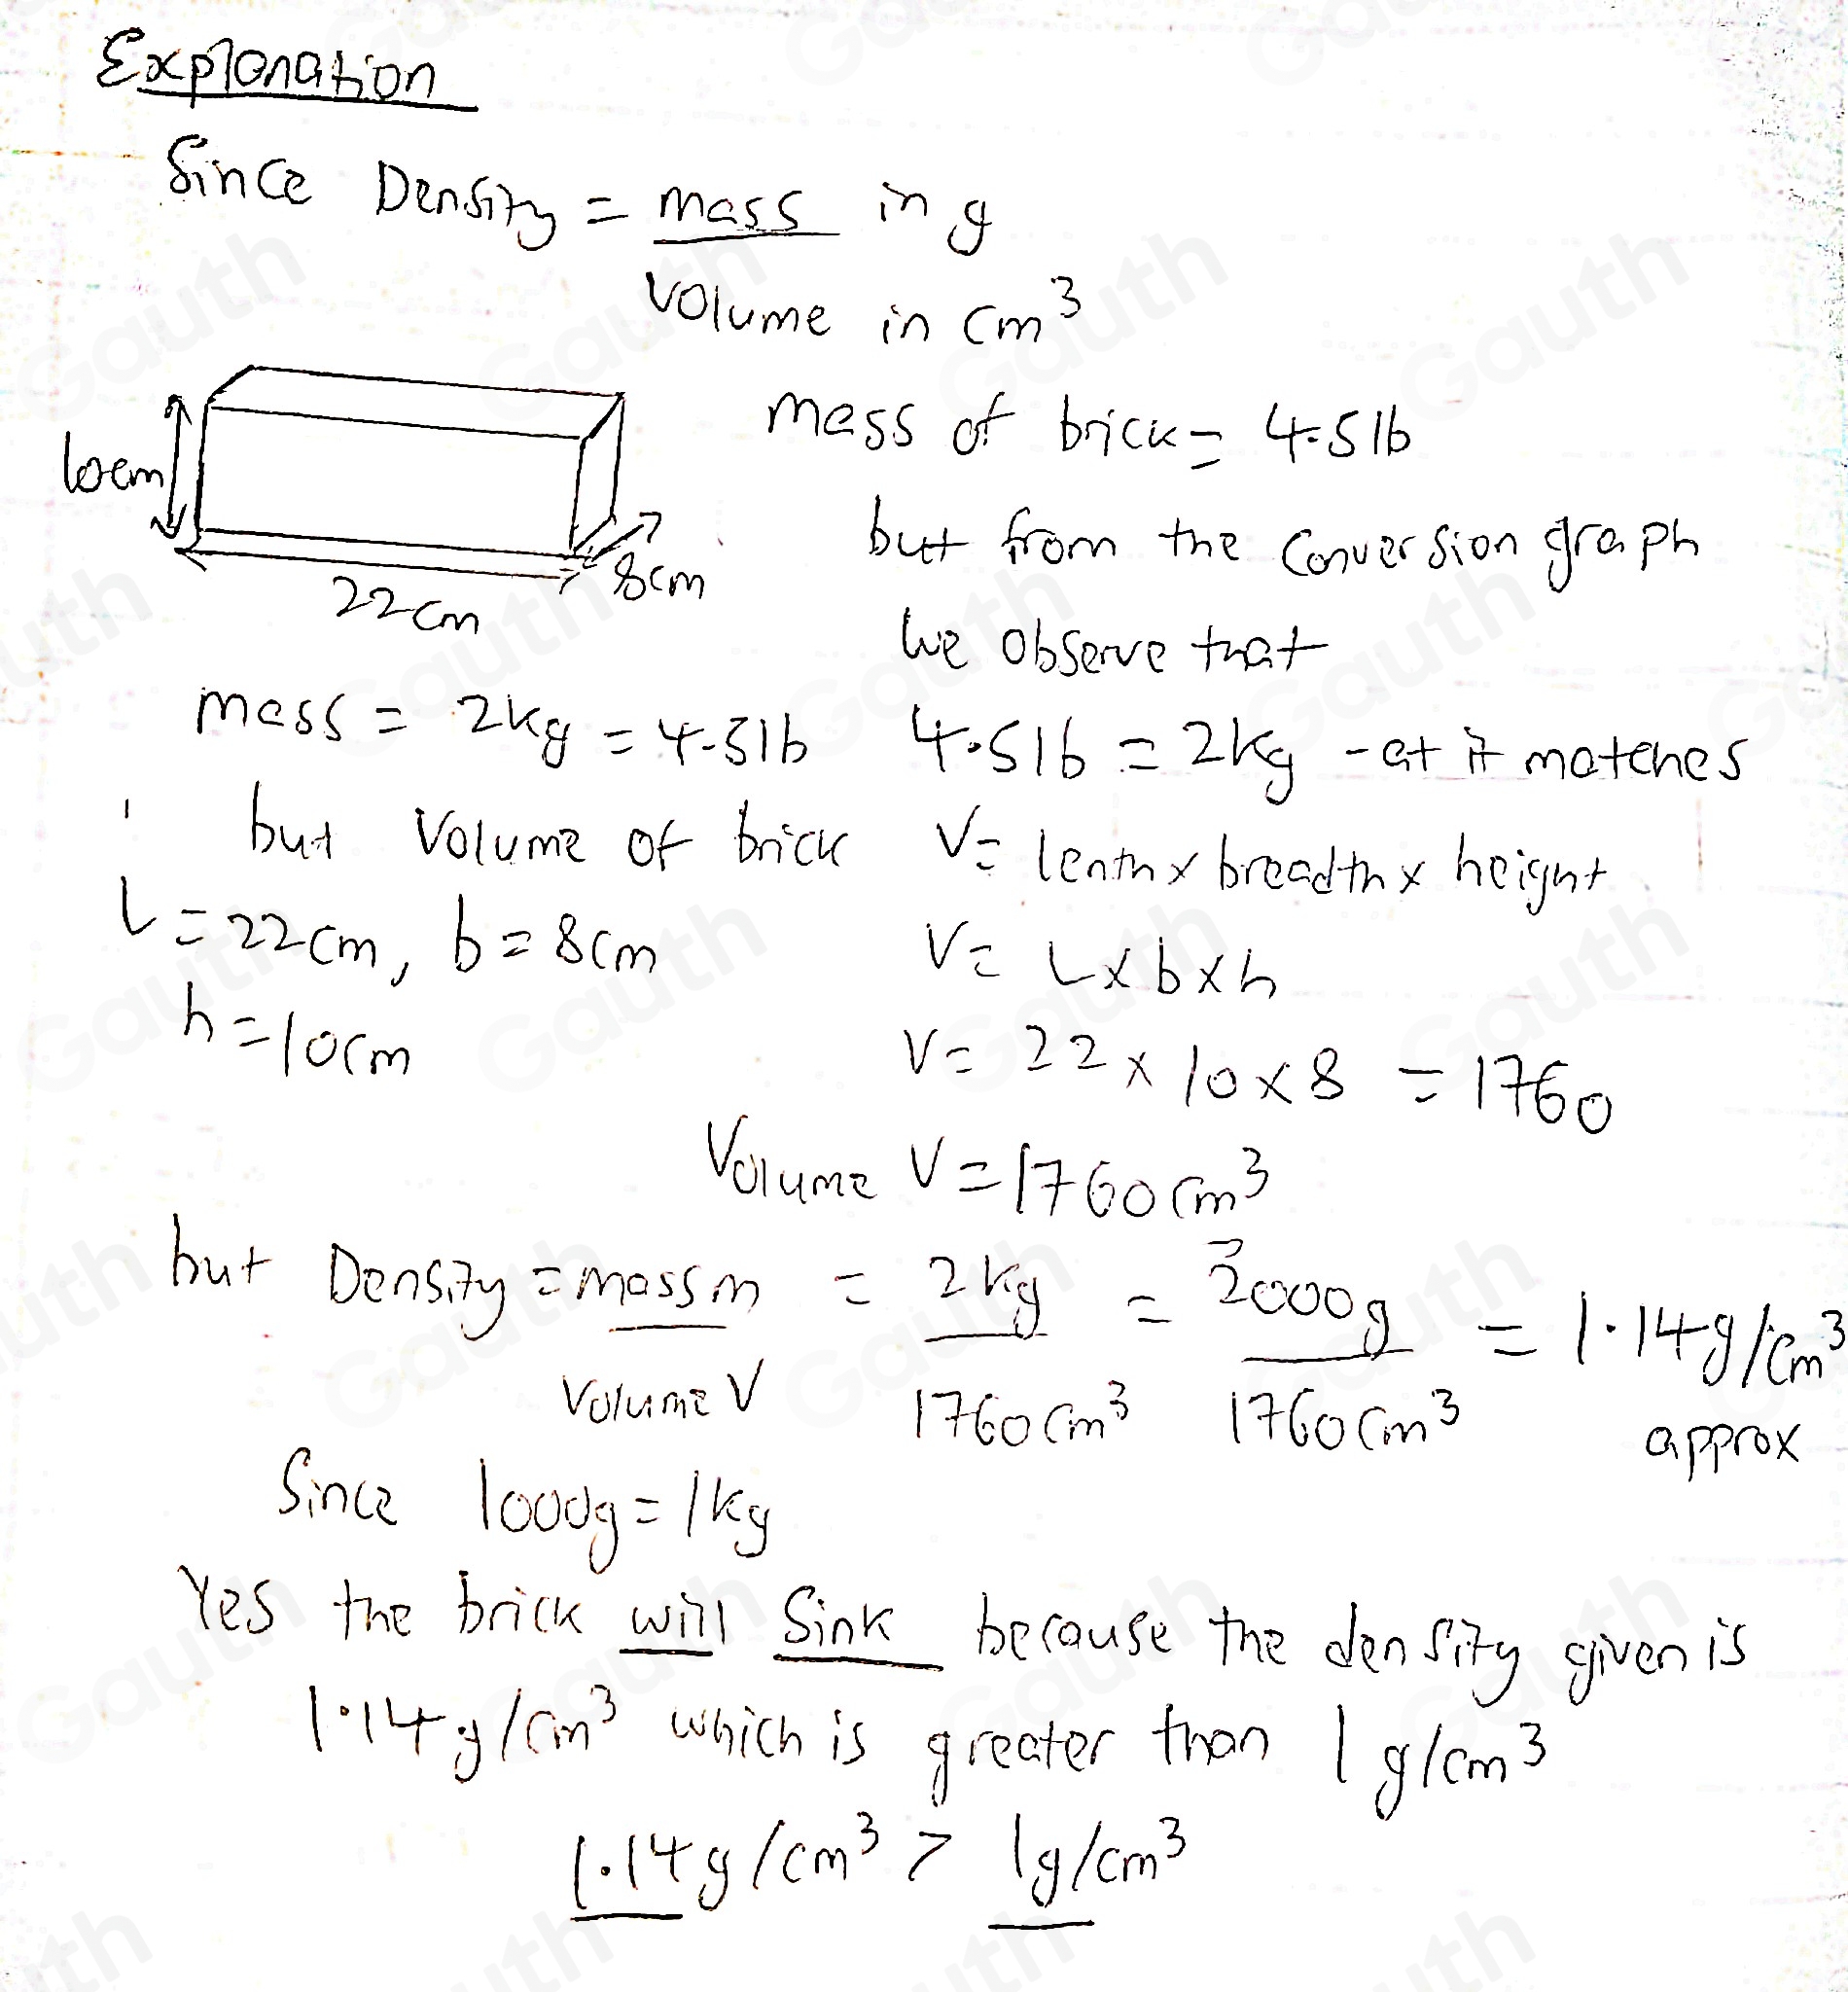 Explanation
Since Density = mass in g
volume in cm³
10cm
22cm
8cm
mass of brick = 4.5lb
but from the conversion graph
we observe that
mass = 2kg = 4.5lb
4.5lb = 2kg - at it matches
but volume of brick
V = lenth x breadth x height
L = 22cm, b = 8cm
V = L x b x h
h = 10cm
V = 22 x 10 x 8 = 1760
Volume V = 1760cm³
but Density = mass m = 2kg = 2000g = 1.14g/cm³
volume V 1760cm³ 1760cm³ approx
Since 1000g = 1kg
Yes the brick will Sink because the density given is
1.14g/cm³ which is greater than 1 g/cm³
1.14g/cm³ > 1g/cm³
Gauth